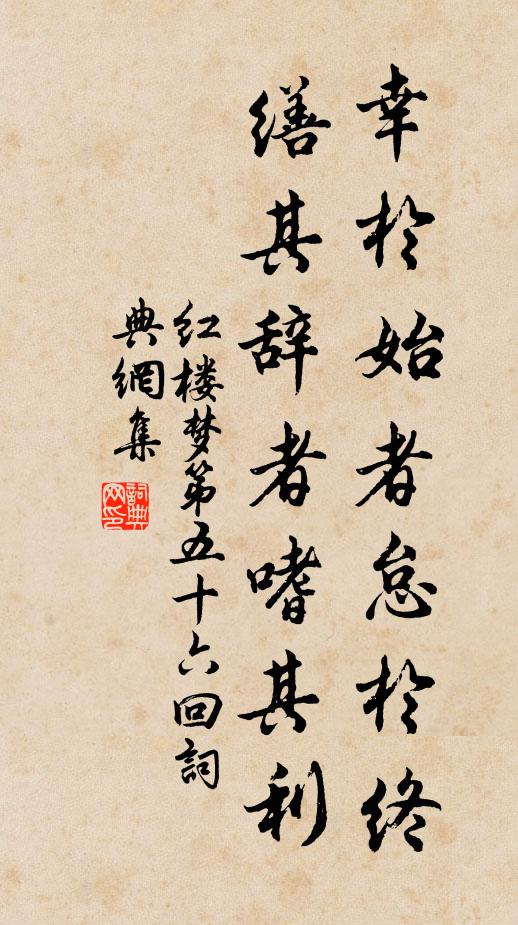 幸於始者怠於终
缮其辞者嗜其利
红楼梦第五十六回詞
典網集
詞典网印